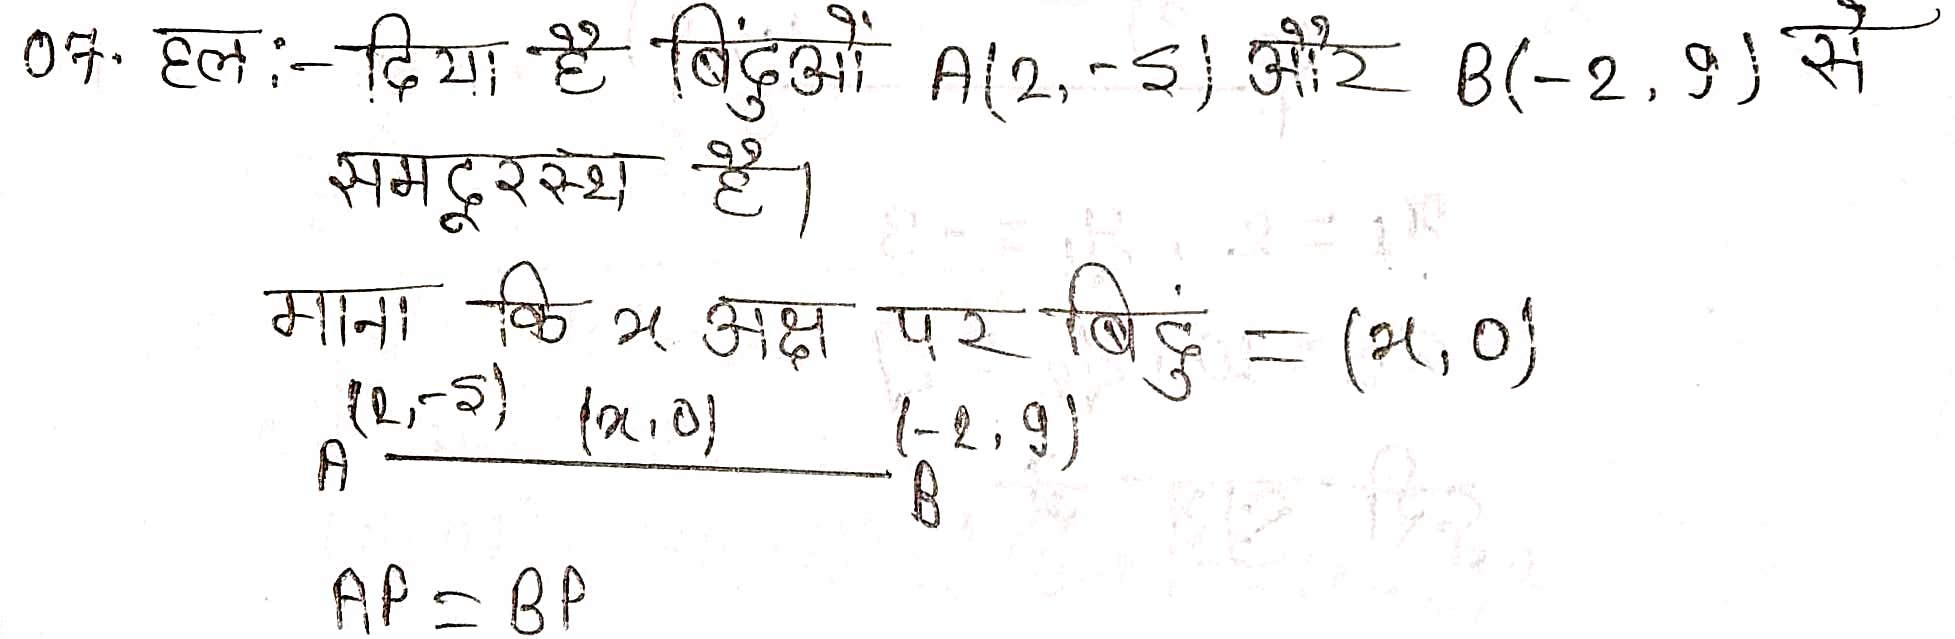 07. हल:- दिया है बिंदुओं A(2, -5) और B(-2, 9) से
समदूरस्थ है।
माना कि x अक्ष पर बिंदु = (x, 0)
(2, -5) (x, 0) (-2, 9)
A B
AP = BP